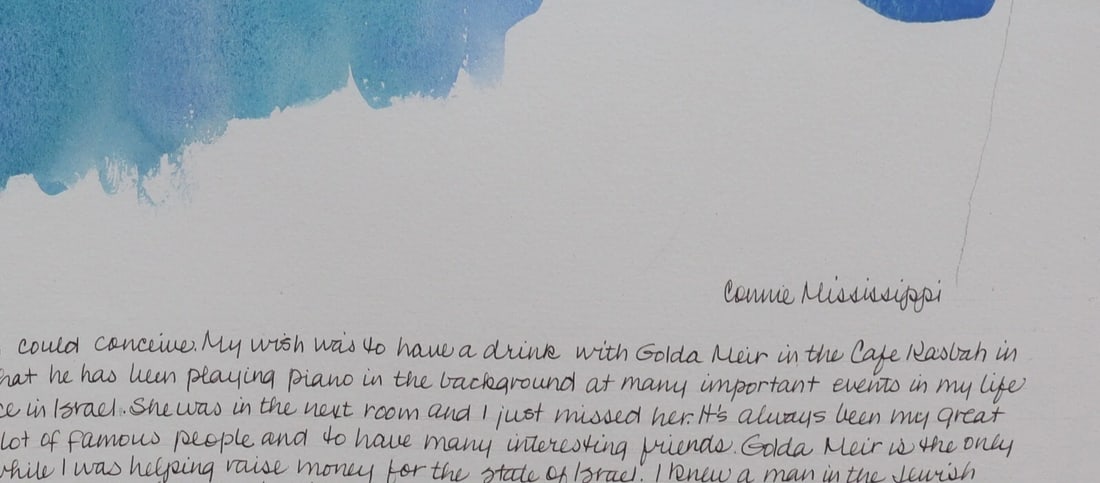 Connie Mississippi
could conceive. My wish was to have a drink with Golda Meir in the Cafe Kasbah in
hat he has been playing piano in the background at many important events in my life
ce in Israel. She was in the next room and I just missed her. It's always been my great
lot of famous people and to have many interesting friends. Golda Meir is the only
while I was helping raise money for the state of Israel. I knew a man in the Jewish